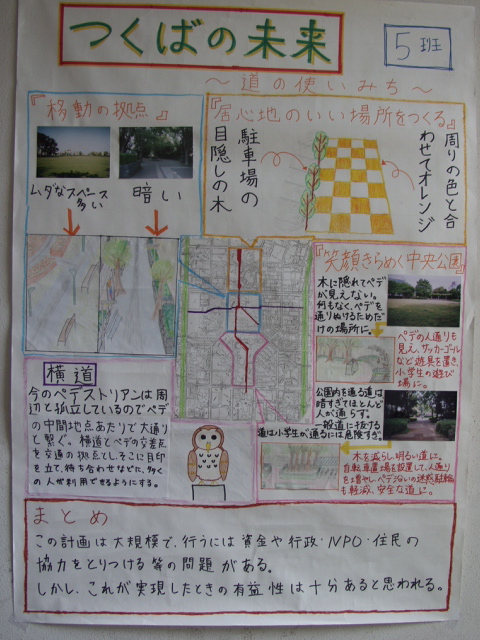 つくばの未来
5班
～道の使いみち～
『移動の拠点』
ムダなスペース
多い
暗い
『居心地のいい場所をつくる』
駐車場の
目隠しの木
周りの色と合
わせてオレンジ
『笑顔きらめく中央公園』
木に隠れてペデ
が見えない。
何もなく、ペデを
通りぬけるためだ
けの場所に。
ペデの人通りも
見え、サッカーゴール
など遊具を置き、
小学生の遊び
場に。
公園内を通る道は
暗すぎてほとんど
人が通らず。
一般道に抜ける
道は小学生が通るには危険すぎ。
木を減らし、明るい道に。
自転車置場を設置して、人通り
を増やし、ペデ沿いの迷惑駐輪
も軽減、安全な道に。
横道
今のペデストリアンは周
辺と孤立しているのでペデ
の中間地点あたりで大通り
と繋ぐ。横道とペデの交差点
を交通の拠点とし、そこに目印
を立て、待ち合わせなど、多く
の人が利用できるようにする。
まとめ
この計画は大規模で、行うには資金や行政・NPO・住民の
協力をとりつける等の問題がある。
しかし、これが実現したときの有益性は十分あると思われる。